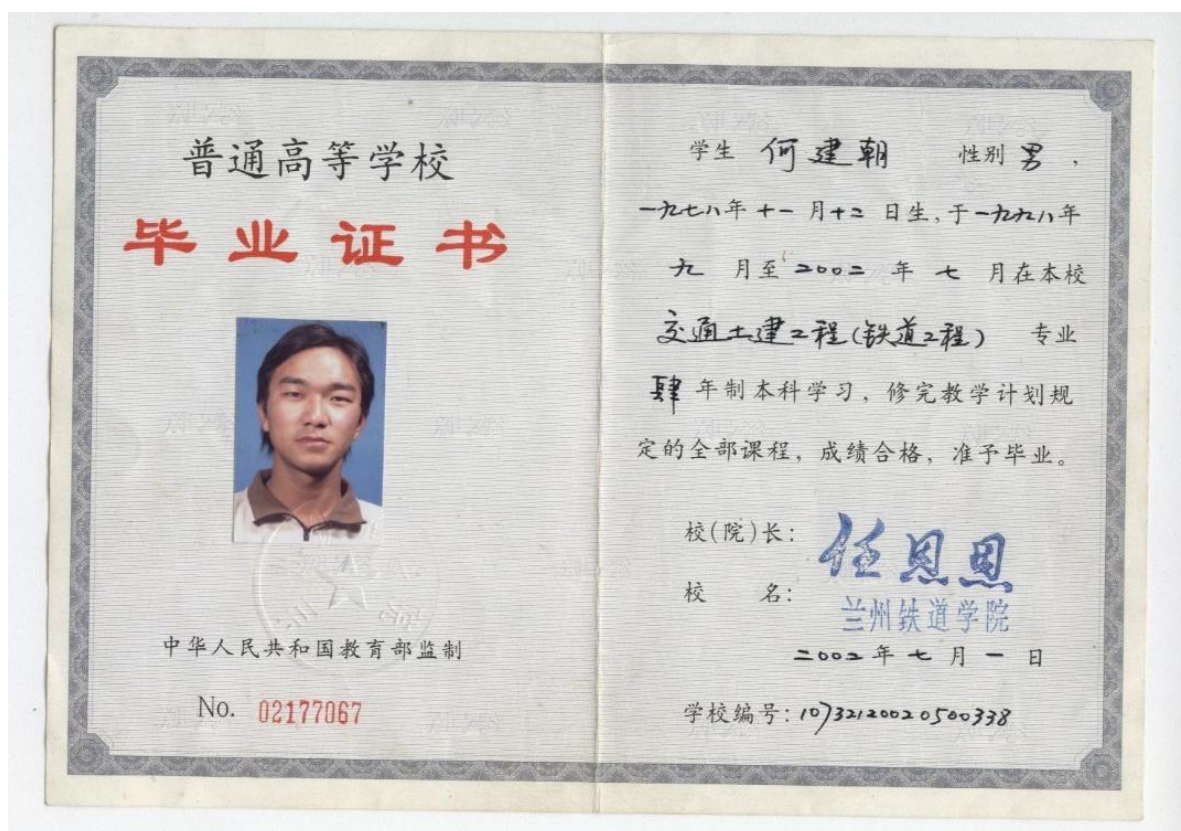 普通高等学校
毕业证书
中华人民共和国教育部监制
No. 02177067
学生 何建朝 性别 男,
一九七八年十一月十二日生,于一九九八年
九月至二〇〇二年七月在本校
交通土建工程(铁道工程) 专业
肆年制本科学习,修完教学计划规
定的全部课程,成绩合格,准予毕业。
校(院)长: 任恩恩
校 名: 兰州铁道学院
二〇〇二年七月一日
学校编号: 10732120020500338